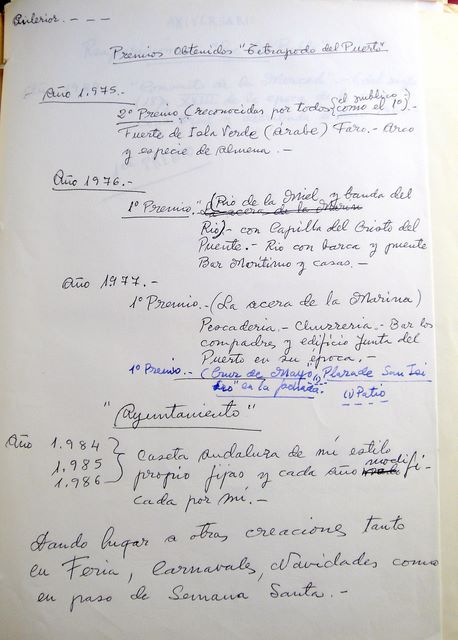 Anterior. - - -
Premios Obtenidos "Tetrapodo del Puerto"
Año 1.975.-
2º Premio (reconocidos por todos el publico como el 1º).-
Fuerte de Isla Verde (Árabe) Faro.- Arco
y especie de almena.-
Año 1976.-
1º Premio.- (Rio de la Miel y banda del
la acera de la Marin
Rio).- con Capilla del Cristo del
Puente.- Rio con barca y puente
Bar Maritimo y casas.-
Año 1977.-
1º Premio.- (La acera de la Marina)
Pescaderia.- Churreria.- Bar los
compadres y edificio Junta del
Puerto en su epoca.-
1º Premio.- (Cruz de Mayo" (1) Plaza de San Isi
dro" en la portada.
(1) Patio
"Ayuntamiento"
Año 1.984
1.985
1.986
Caseta andaluza de mi estilo
propio fijas y cada año modifi
cada por mí.-
Dando lugar a otras creaciones tanto
en Feria, Carnavales, Navidades como
en paso de Semana Santa.-